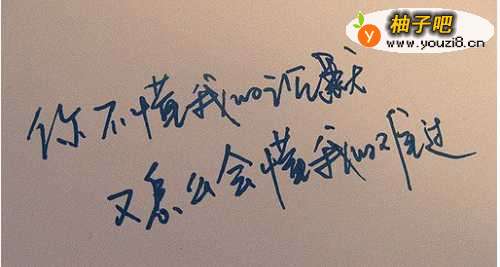 柚子吧
www.youzi8.cn
你不懂我的沉默
又怎么会懂我的难过